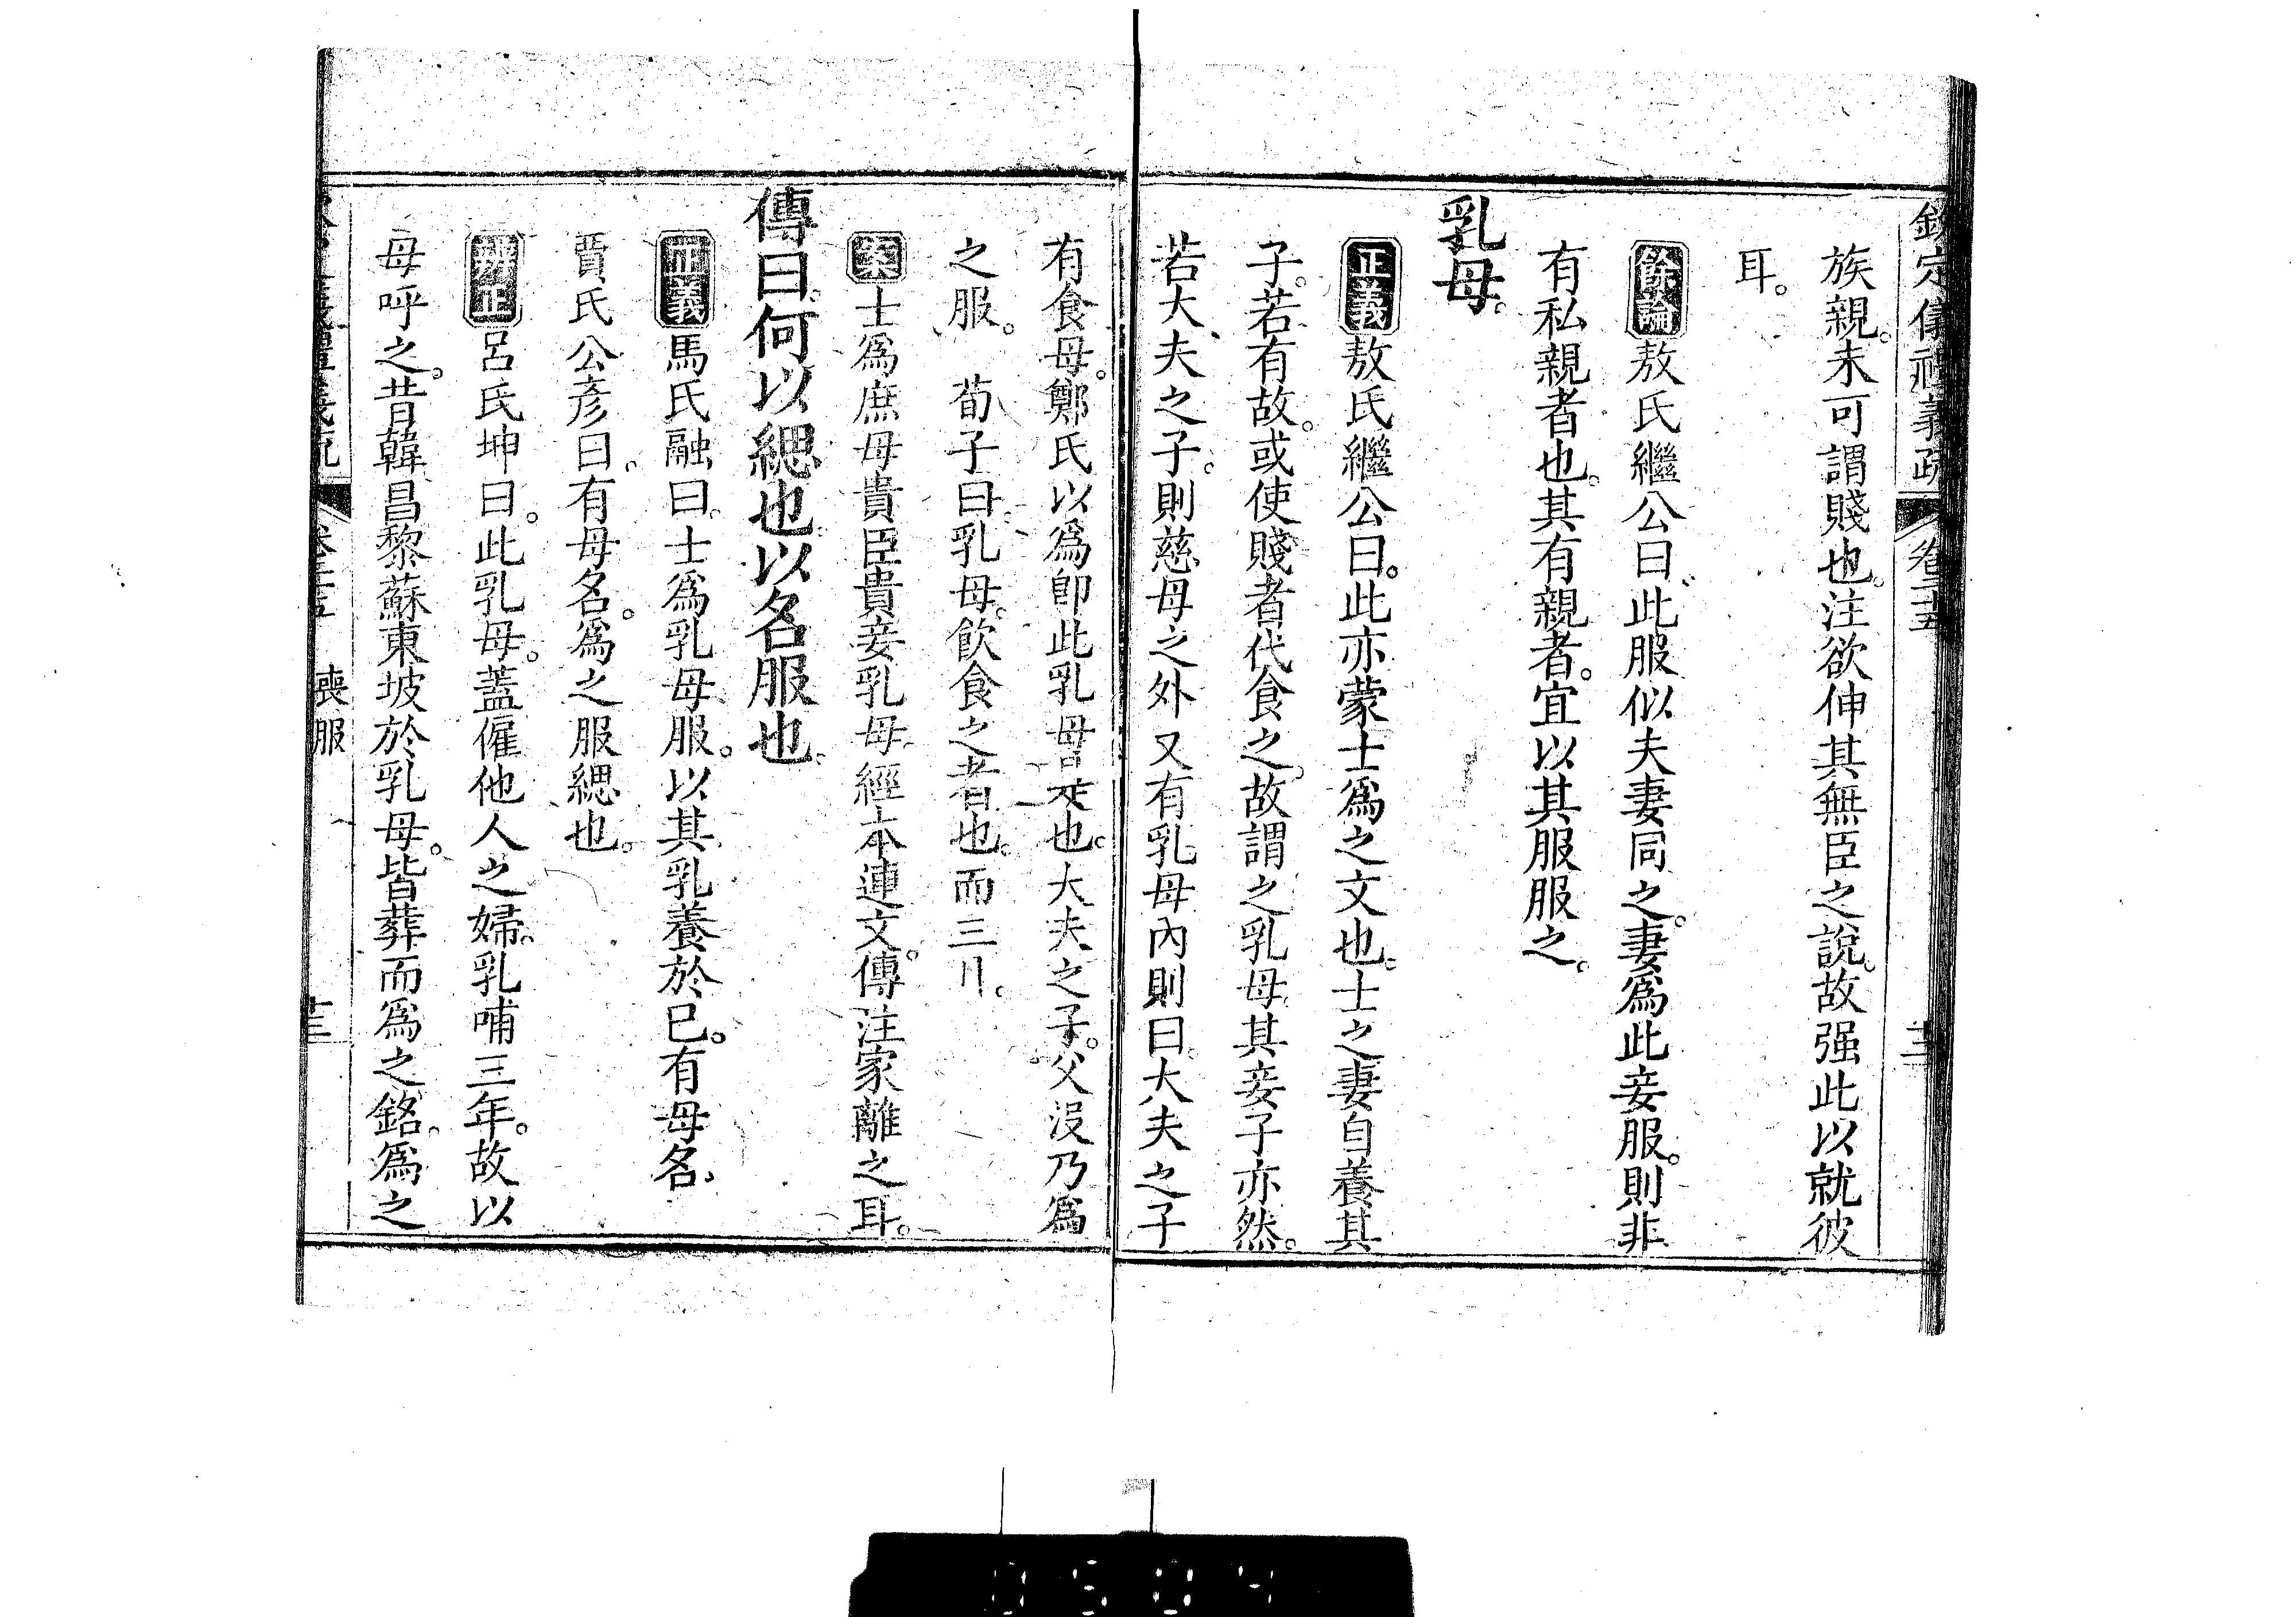 欽定儀禮義疏 卷二十五 十三
族親。未可謂賤也。注欲伸其無臣之說。故强此以就彼
耳。
餘論敖氏繼公曰。此服似夫妻同之。妻爲此妾服。則非
有私親者也。其有親者。宜以其服服之。
乳母。
正義敖氏繼公曰。此亦蒙士爲之文也。士之妻自養其
子。若有故。或使賤者代食之。故謂之乳母。其妾子亦然。
若大夫之子。則慈母之外又有乳母。內則曰。大夫之子
有食母。鄭氏以爲卽此乳母是也。大夫之子。父沒乃爲
之服。 荀子曰。乳母。飲食之者也。而三月。
案士爲庶母貴臣貴妾乳母。經本連文。傳注家離之耳。
傳曰。何以緦也。以名服也。
正義馬氏融曰。士爲乳母服。以其乳養於已。有母名。
賈氏公彥曰。有母名。爲之服緦也。
辨正呂氏坤曰。此乳母。蓋僱他人之婦。乳哺三年。故以
母呼之。昔韓昌黎蘇東坡於乳母。皆葬而爲之銘。爲之
喪服